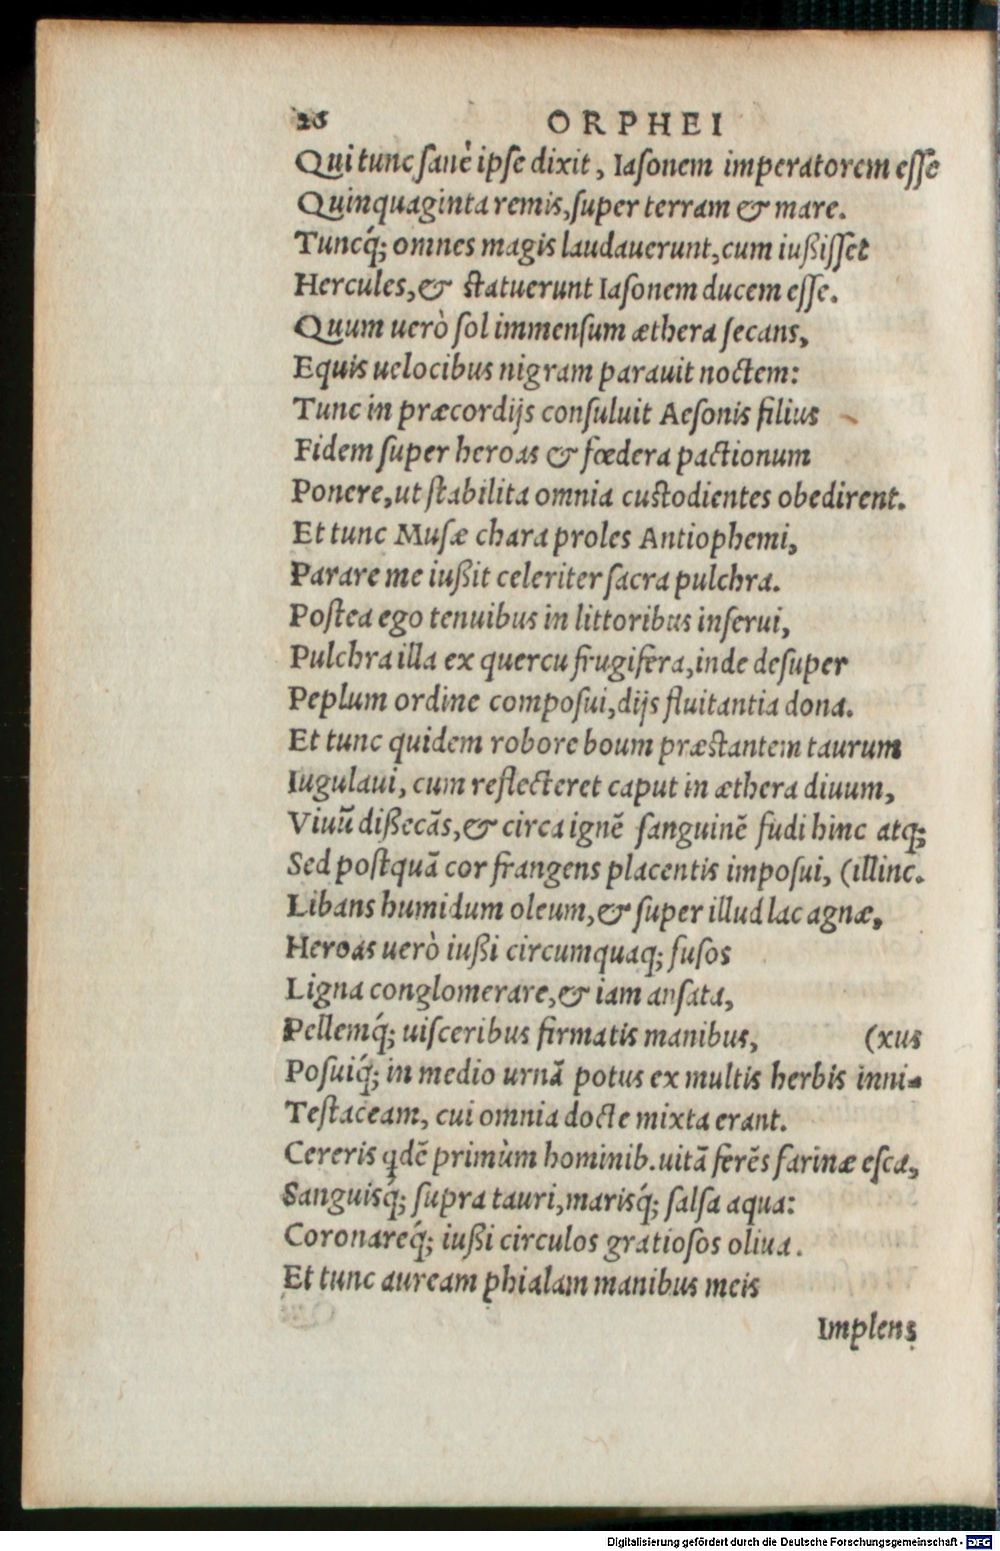 26 ORPHEI
Qui tunc ſanè ipſe dixit, Iaſonem imperatorem eſſe
Quinquaginta remis, ſuper terram & mare.
Tuncq́; omnes magis laudauerunt, cum iußiſſet
Hercules, & ſtatuerunt Iaſonem ducem eſſe.
Quum uerò ſol immenſum æthera ſecans,
Equis uelocibus nigram parauit noctem:
Tunc in præcordijs conſuluit Aeſonis filius
Fidem ſuper heroas & fœdera pactionum
Ponere, ut ſtabilita omnia cuſtodientes obedirent.
Et tunc Muſæ chara proles Antiophemi,
Parare me iußit celeriter ſacra pulchra.
Poſtea ego tenuibus in littoribus inſerui,
Pulchra illa ex quercu frugifera, inde deſuper
Peplum ordine compoſui, dijs fluitantia dona.
Et tunc quidem robore boum præſtantem taurum
Iugulaui, cum reflecteret caput in æthera diuum,
Viuũ dißecãs, & circa ignẽ ſanguinẽ fudi hinc atq;
Sed poſtquã cor frangens placentis impoſui, (illinc.
Libans humidum oleum, & ſuper illud lac agnæ,
Heroas uerò iußi circumquaq; fuſos
Ligna conglomerare, & iam anſata,
Pellemq́; uiſceribus firmatis manibus, (xus
Poſuiq́; in medio urnã potus ex multis herbis inni-
Teſtaceam, cui omnia docte mixta erant.
Cereris qdẽ primùm hominib. uitã ferẽs farinæ eſca,
Sanguisq́; ſupra tauri, marisq́; ſalſa aqua:
Coronareq́; iußi circulos gratioſos oliua.
Et tunc auream phialam manibus meis
Implens
Digitalisierung gefördert durch die Deutsche Forschungsgemeinschaft - DFG